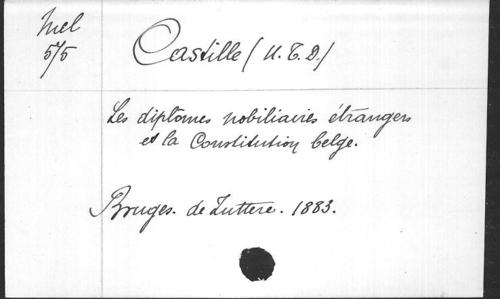 Mel
5/5
Castille (U. T. D.)
Les diplômes nobiliaires étrangers
et la Constitution belge.
Bruges. de Zuttere. 1883.